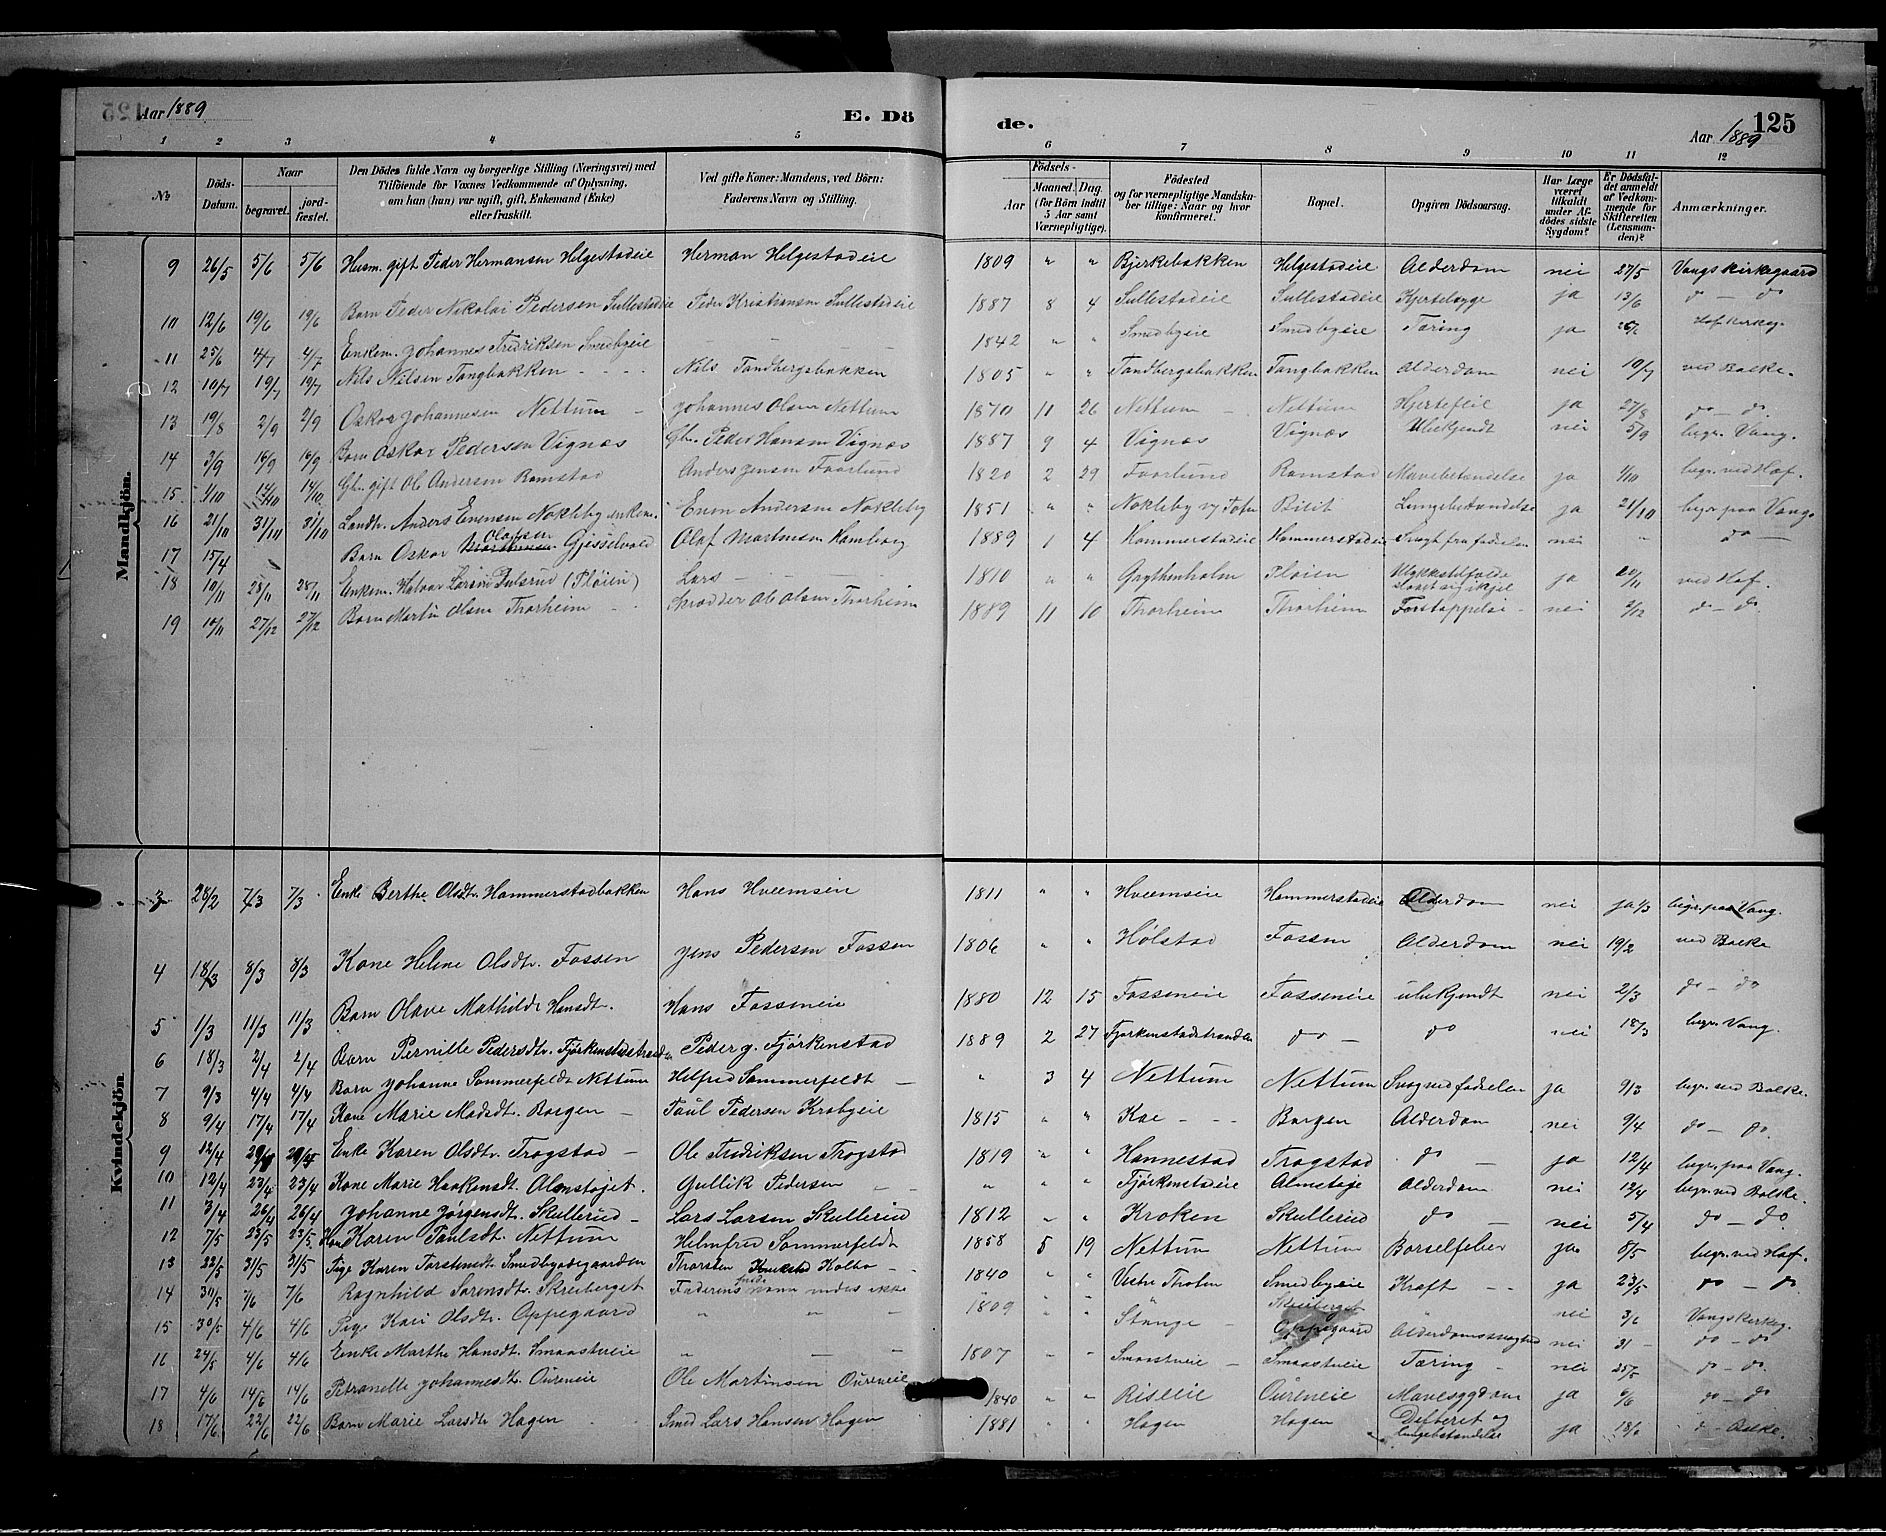 Aar 1889
E. Dö
de.
Aar 1889
125
1 2 3 4 5 6 7 8 9 10 11 12
№
Döds-Datum.
Naar
begravet.
jord-fæstet.
Den Dödes fulde Navn og borgerlige Stilling (Næringsvei) med
Tilföiende for Voxnes Vedkommende af Oplysning,
om han (hun) var ugift, gift, Enkemand (Enke)
eller fraskilt.
Ved gifte Koner: Mandens, ved Börn:
Faderens Navn og Stilling.
Födsels-
Aar
Maaned. Dag.
(for Börn indtil
5 Aar samt
Værnepligtige).
Födested
og for værnepligtige Mandska-
ber tillige: Naar og hvor
konfirmeret.
Bopæl.
Opgiven Dödsaarsag.
Har Læge
været
tilkaldt
under Af-
dödes sidste
Sygdom?
Er Dödsfal-
det anmeldt
af Vedkom-
mende for
Skifteretten
(Lensman-
den)?
Anmærkninger.
Mandkjön.
9 26/5 5/6 5/6 Husm. gift Peder Hermansen Helgestadeie Herman Helgestadeie 1809 " " Bjerkebakken Helgestadeie Alderdom nei 27/5 Vangs kirkegaard
10 12/6 19/6 19/6 Barn Peder Nikolai Pedersen Sullestadeie Peder Kristiansen Sullestadeie 1887 8 4 Sullestadeie Sullestadeie ja 13/6 do - do
11 25/6 4/7 4/7 Enkem. Johannes Fredriksen Smedbyeie - - - 1842 " " Smedbyeie Smedbyeie Tæring ja Hof kirkeg.
12 10/7 19/7 19/7 Nils Nilsen Tangbakken - - - - Nils Tandbergsbakken 1805 " " Tandbergsbakken Tangbakken Alderdom nei 10/7 ved Balke.
13 19/8 2/9 2/9 Oskar Johannesen Nettum - Johannes Olsen Nettum 1870 11 26 Nettum - Nettum Hjertefeil ja 27/8 do - do.
14 3/9 16/9 16/9 Barn Oskar Pedersen Vignæs Gbr. Peder Hansen Vignæs 1887 9 4 Vignæs Vignæs Ubekjendt nei 5/9 begr. Vang.
15 1/10 14/10 14/10 Gbr. gift Ole Andersen Ramstad Anders Jensen Faarlund 1820 2 29 Faarlund Ramstad Mavebetændelse ja 1/10 begr. ved Hof.
16 21/10 31/10 31/10 Landv. Anders Evensen Nøkleby enkem. Even Andersen Nøkleby 1851 " " Nøkleby v/ Totn Bilit Lungebetændelse ja 21/10 begr. paa Vang
17 15/4 Barn Oskar Olafsen Gjesselvold Olaf Martinsen Hamborg 1889 1 4 Hammerstadeie Hammerstadeie Svagt fra fødselen nei " do -
18 10/11 28/11 28/11 Enkem. Halvor Larsen Dulsrud (Pløien) Lars - - - 1810 " " Grythenholm Pløien Ulykkestilfælde ja 20/11 ved Hof.
19 10/11 27/12 27/12 Barn Martin Olsen Thorheim - - Skrædder Ole Olsen Thorheim 1889 11 10 Thorheim Thorheim Forstoppelse - nei 2/12 do - do
Kvindekjön
3 28/2 7/3 7/3 Enke Berthe Olsdtr. Hammerstadbakken Hans Hveemseie 1811 " " Hveemseie Hammerstadeie Alderdom nei ja 1/3 begr. paa Vang.
4 18/3 8/3 8/3 Kone Helene Olsdtr. Fossen Jens Pedersen Fossen 1806 " " Hølstad Fossen Alderdom nei 19/2 ved Balke
5 1/3 11/3 11/3 Barn Olave Mathilde Hansdt. Hans Fosseneie 1880 12 15 Fosseneie Fosseneie ubekjendt nei 2/3 do - do
6 18/3 2/4 2/4 Barn Pernille Pedersdtr. Fjørkenstadstranden Peder G. Fjørkenstad 1889 2 27 Fjørkenstadstranden do - do nei 18/3 begr. Vang.
7 9/3 4/4 4/4 Barn Johanne Sommerfeldt Nettum Helfred Sommerfeldt - " 3 4 Nettum Nettum Svag ved fødselen ja 9/3 begr. ved Balke.
8 9/4 17/4 17/4 Kone Marie Madsdt. Borgen - Paul Pedersen Krabyeie 1815 " " Kae - - - Borgen Alderdom nei 9/4 do - do.
9 12/4 29/4 29/4 Enke Karen Olsdtr. Trogstad - Ole Fredriksen Trogstad 1819 " " Hannestad Trogstad do - ja 12/4 begr. paa Vang.
10 12/4 23/4 23/4 Kone Marie Haakensdt. Almstøjet. Gullik Pedersen - " " " Fjørkenstadeie Almstøje Alderdom nei 12/4 begr. ved Balske.
11 3/4 26/4 26/4 Johanne Jørgensdt. Skullerud - Lars Larsen Skullerud 1812 " " Kroken Skullerud do - nei 5/4 do - do.
12 7/5 23/5 23/5 Karen Paulsdt. Nettum Helmfred Sommerfeldt 1858 5 19 Nettum Nettum Barselfeber ja 8/5 begr. ved Hof.
13 22/5 31/5 31/5 Pige Karen Torstensdt. Smedbyødegaarden Thorsten Kolbo - - 1840 " " Vestre Thoten Smedbyeie Kræft - - ja 23/5 do - do
14 30/5 7/6 7/6 Ragnhild Sørensdt. Skreiberget Faderens navn vides ikke 1809 " " Skreiberget " nei 3/6 Vangs kirkeg.
15 30/5 4/6 4/6 Pige Kari Olsdtr. Oppegaard " " " " " Stange - Oppegaard Alderdomssvaghed nei 31 - do - do
16 24/5 4/6 4/6 Enke Marthe Hansdt. Smaastueie " - - 1807 " " Smaastueie - Smaastueie Tæring - nei 25/5 do - do.
17 4/6 14/6 14/6 Petronelle Johannesdt. Øureneie Ole Martinsen Øureneie 1840 " " Riseeie Øureneie Mavesygdom ja 6/6 do - do
18 17/6 22/6 22/6 Barn Marie Larsdtr Hagen - - Smed Lars Hansen Hagen 1881 Hagen Hagen Difteret og lungebetændelse ja 18/6 - Balke.